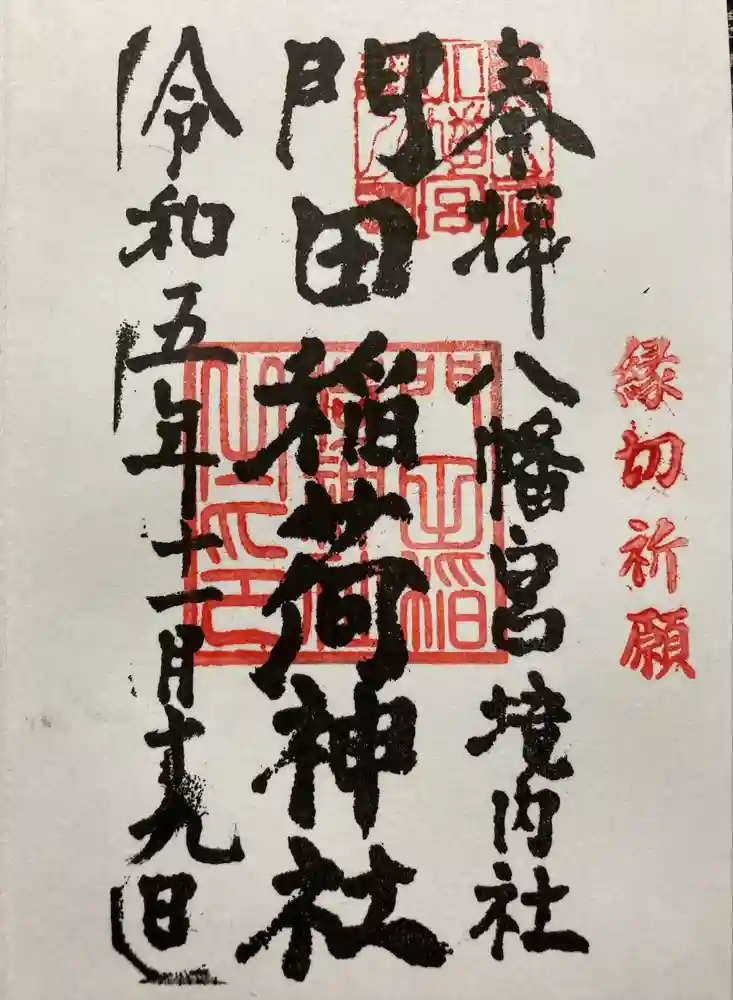 縁切祈願
奉拝 八幡宮 境内社
門田稲荷神社
令和五年十一月十九日